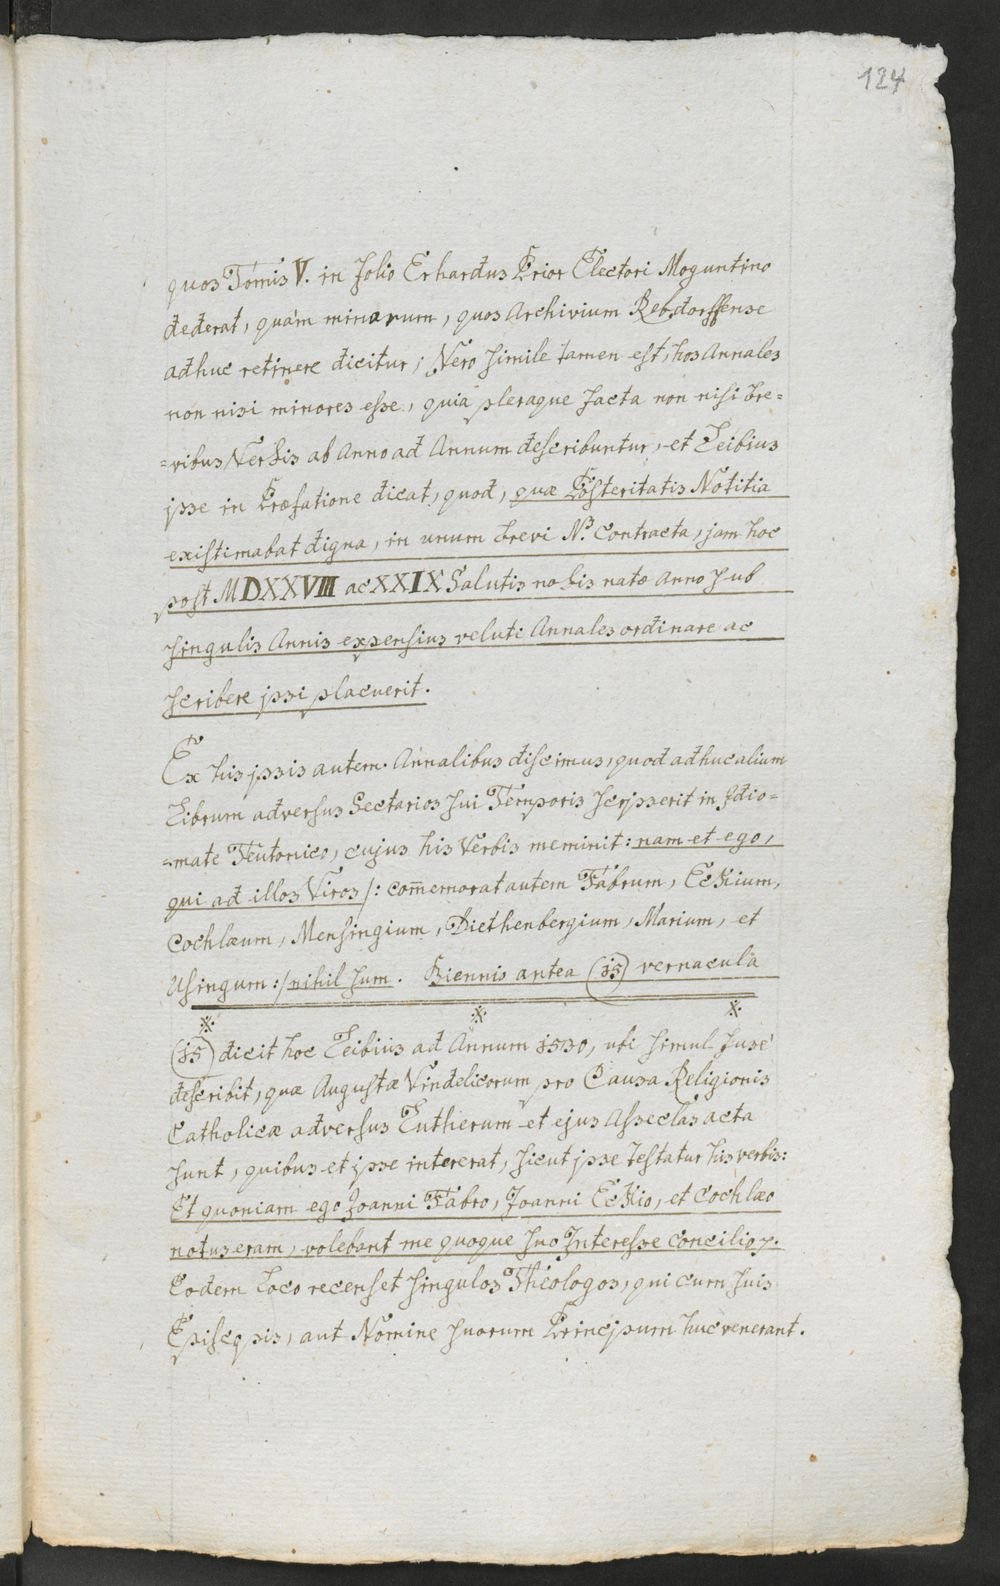 124
quos Tomis V. in Folio Erhardus Prior Electori Moguntino
dederat, quàm minorum, quos Archivium Rebdorffense
adhuc retinere dicitur; Vero simile tamen est, hos Annales
non nisi minores esse, quia pleraque facta non nisi bre=
=vibus Verbis ab Anno ad Annum describuntur, et Leibius
ipse in Præfatione dicat, quod, quæ Posteritatis Notitia
existimabat digna, in unum brevi N.º contracta, jam hoc
post MDXXVIII ac XXIX Salutis nobis natæ Anno sub
singulis Annis expensius veluti Annales ordinare ac
scribere ipsi placuerit.
Ex his ipsis autem Annalibus discimus, quod adhuc alium
Librum adversus Sectarios sui Temporis scripserit in Idio=
=mate Teutonico, cujus his Verbis meminit: nam et ego,
qui ad illos Viros /: com̄emorat autem Fabrum, Eckium,
Cochlæum, Mensingium, Diethenbergium, Marium, et
Usingum :/ nihil sum. Biennis antea (15) vernacula
(15) dicit hoc Leibius ad Annum 1530, ubi simul fusè
describit, quæ Augustæ Vindelicorum pro Causa Religionis
Catholicæ adversus Lutherum et ejus Asseclas acta
sunt, quibus et ipse intererat, sicut ipse testatur his verbis:
Et quoniam ego Joanni Fabro, Joanni Eckio, et Cochlæo
notus eram, volebant me quoque suo Interesse Concilio.
Eodem Loco recenset singulos Theologos, qui cum suis
Episcopis, aut Nomine suorum Principum huc venerant.